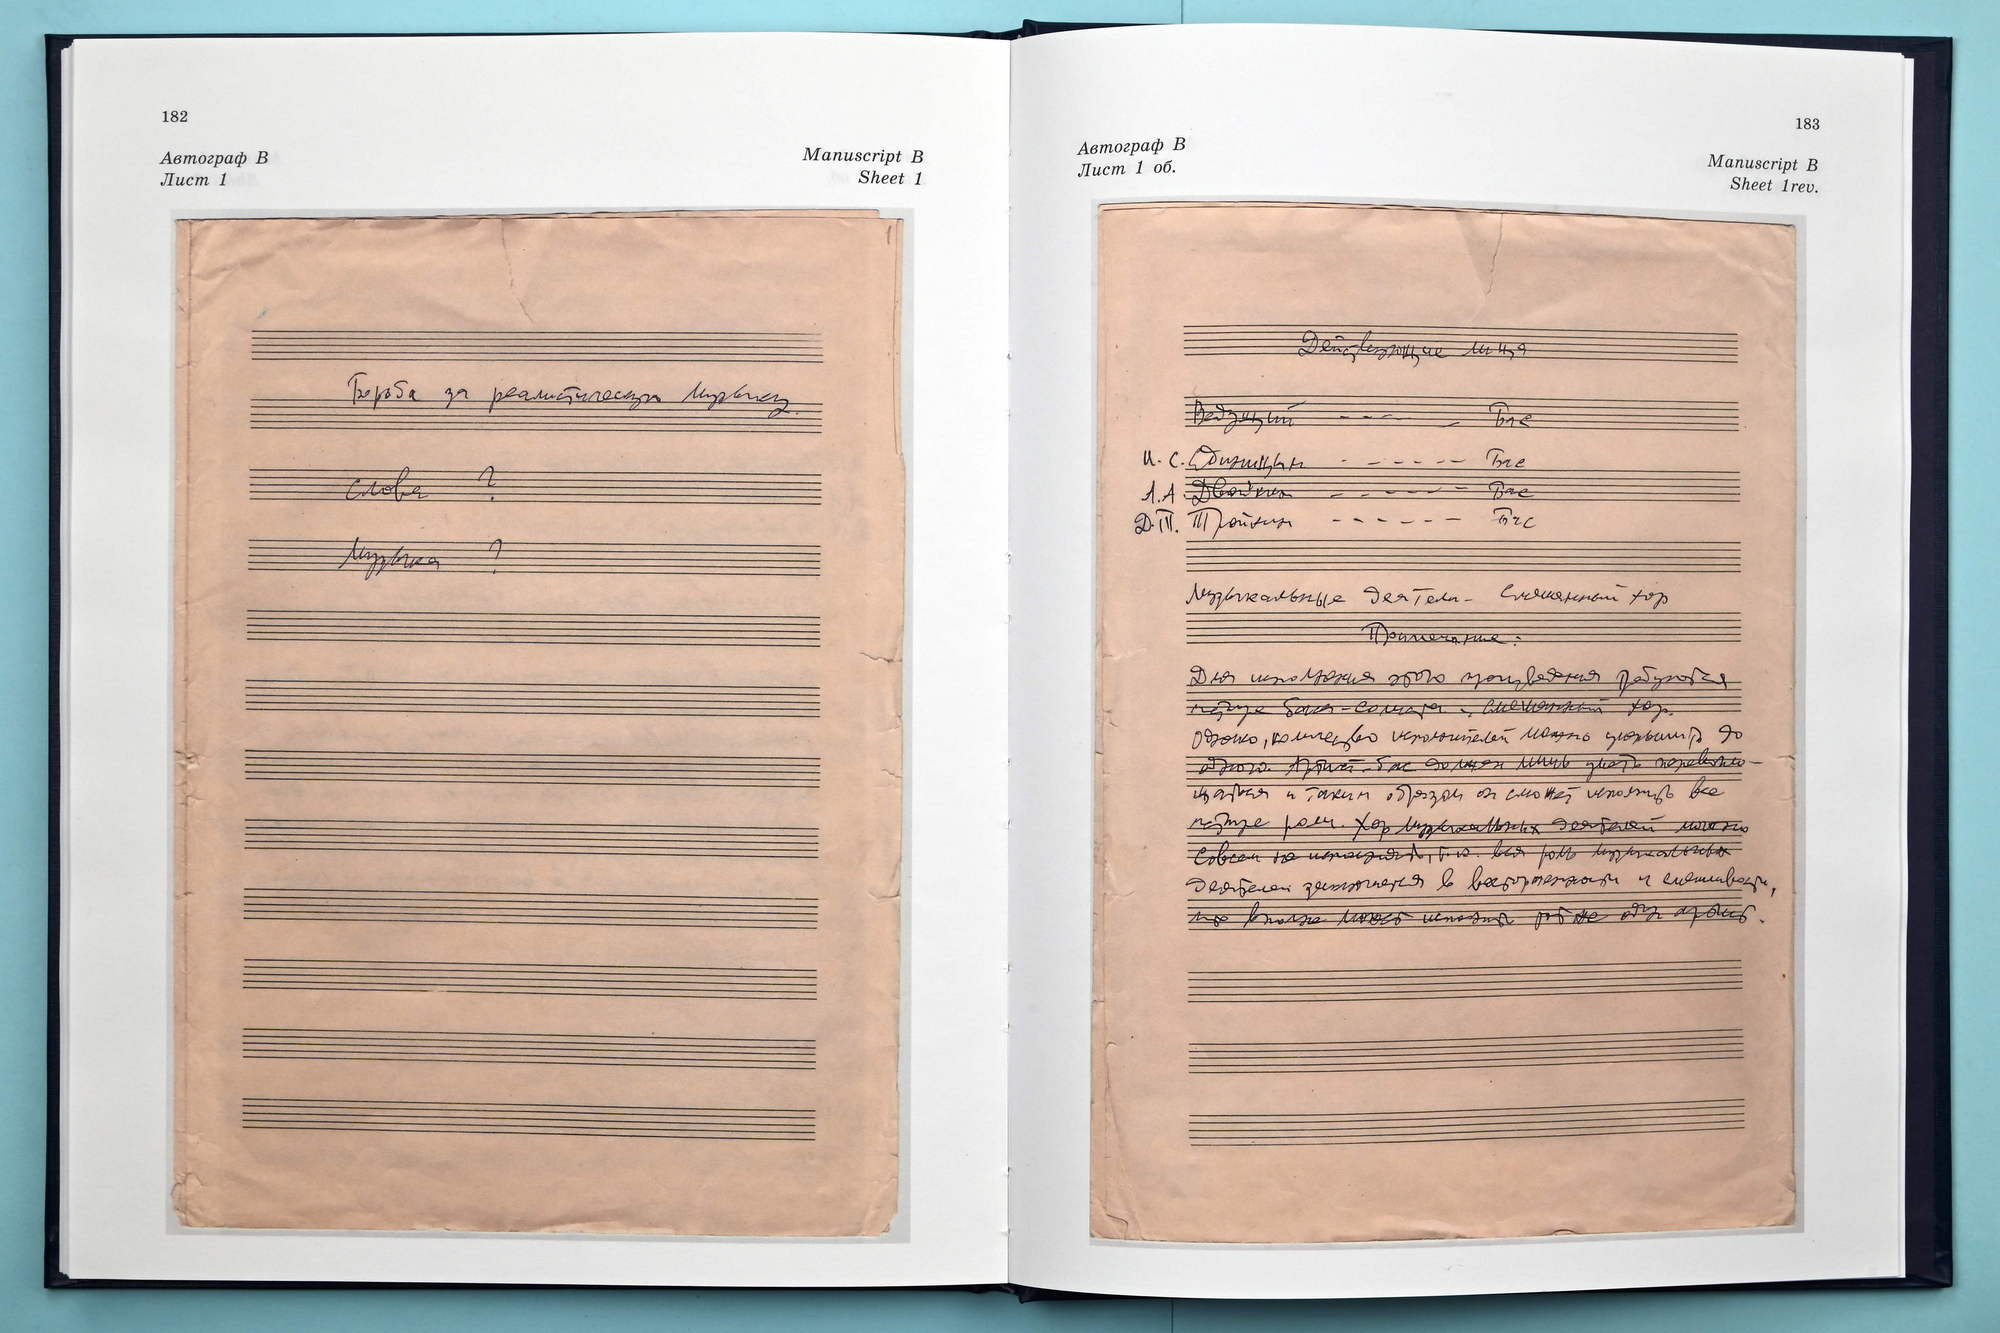 182
Автограф В
Лист 1
Manuscript B
Sheet 1
Борьба за реалистическую музыку.
Слова ?
Музыка ?
183
Автограф В
Лист 1 об.
Manuscript B
Sheet 1rev.
Действующие лица
Ведущий - - - - Бас
И. С. Единицын - - - - - Бас
А. А. Двойкин - - - - - Бас
Д. П. Тройкин - - - - - - Бас
Музыкальные деятели - Смешанный хор
Примечание:
Для исполнения этого произведения требуются
четыре баса-солиста и смешанный хор.
Однако, количество исполнителей можно уменьшить до
одного. Артист-бас должен лишь уметь перевопло-
щаться и таким образом он сможет исполнить все
четыре роли. Хор музыкальных деятелей можно
совсем не исполнять, т.к. вся роль музыкальных
деятелей заключается в восторженности и смешливости,
что вполне может исполнить тот же один артист.